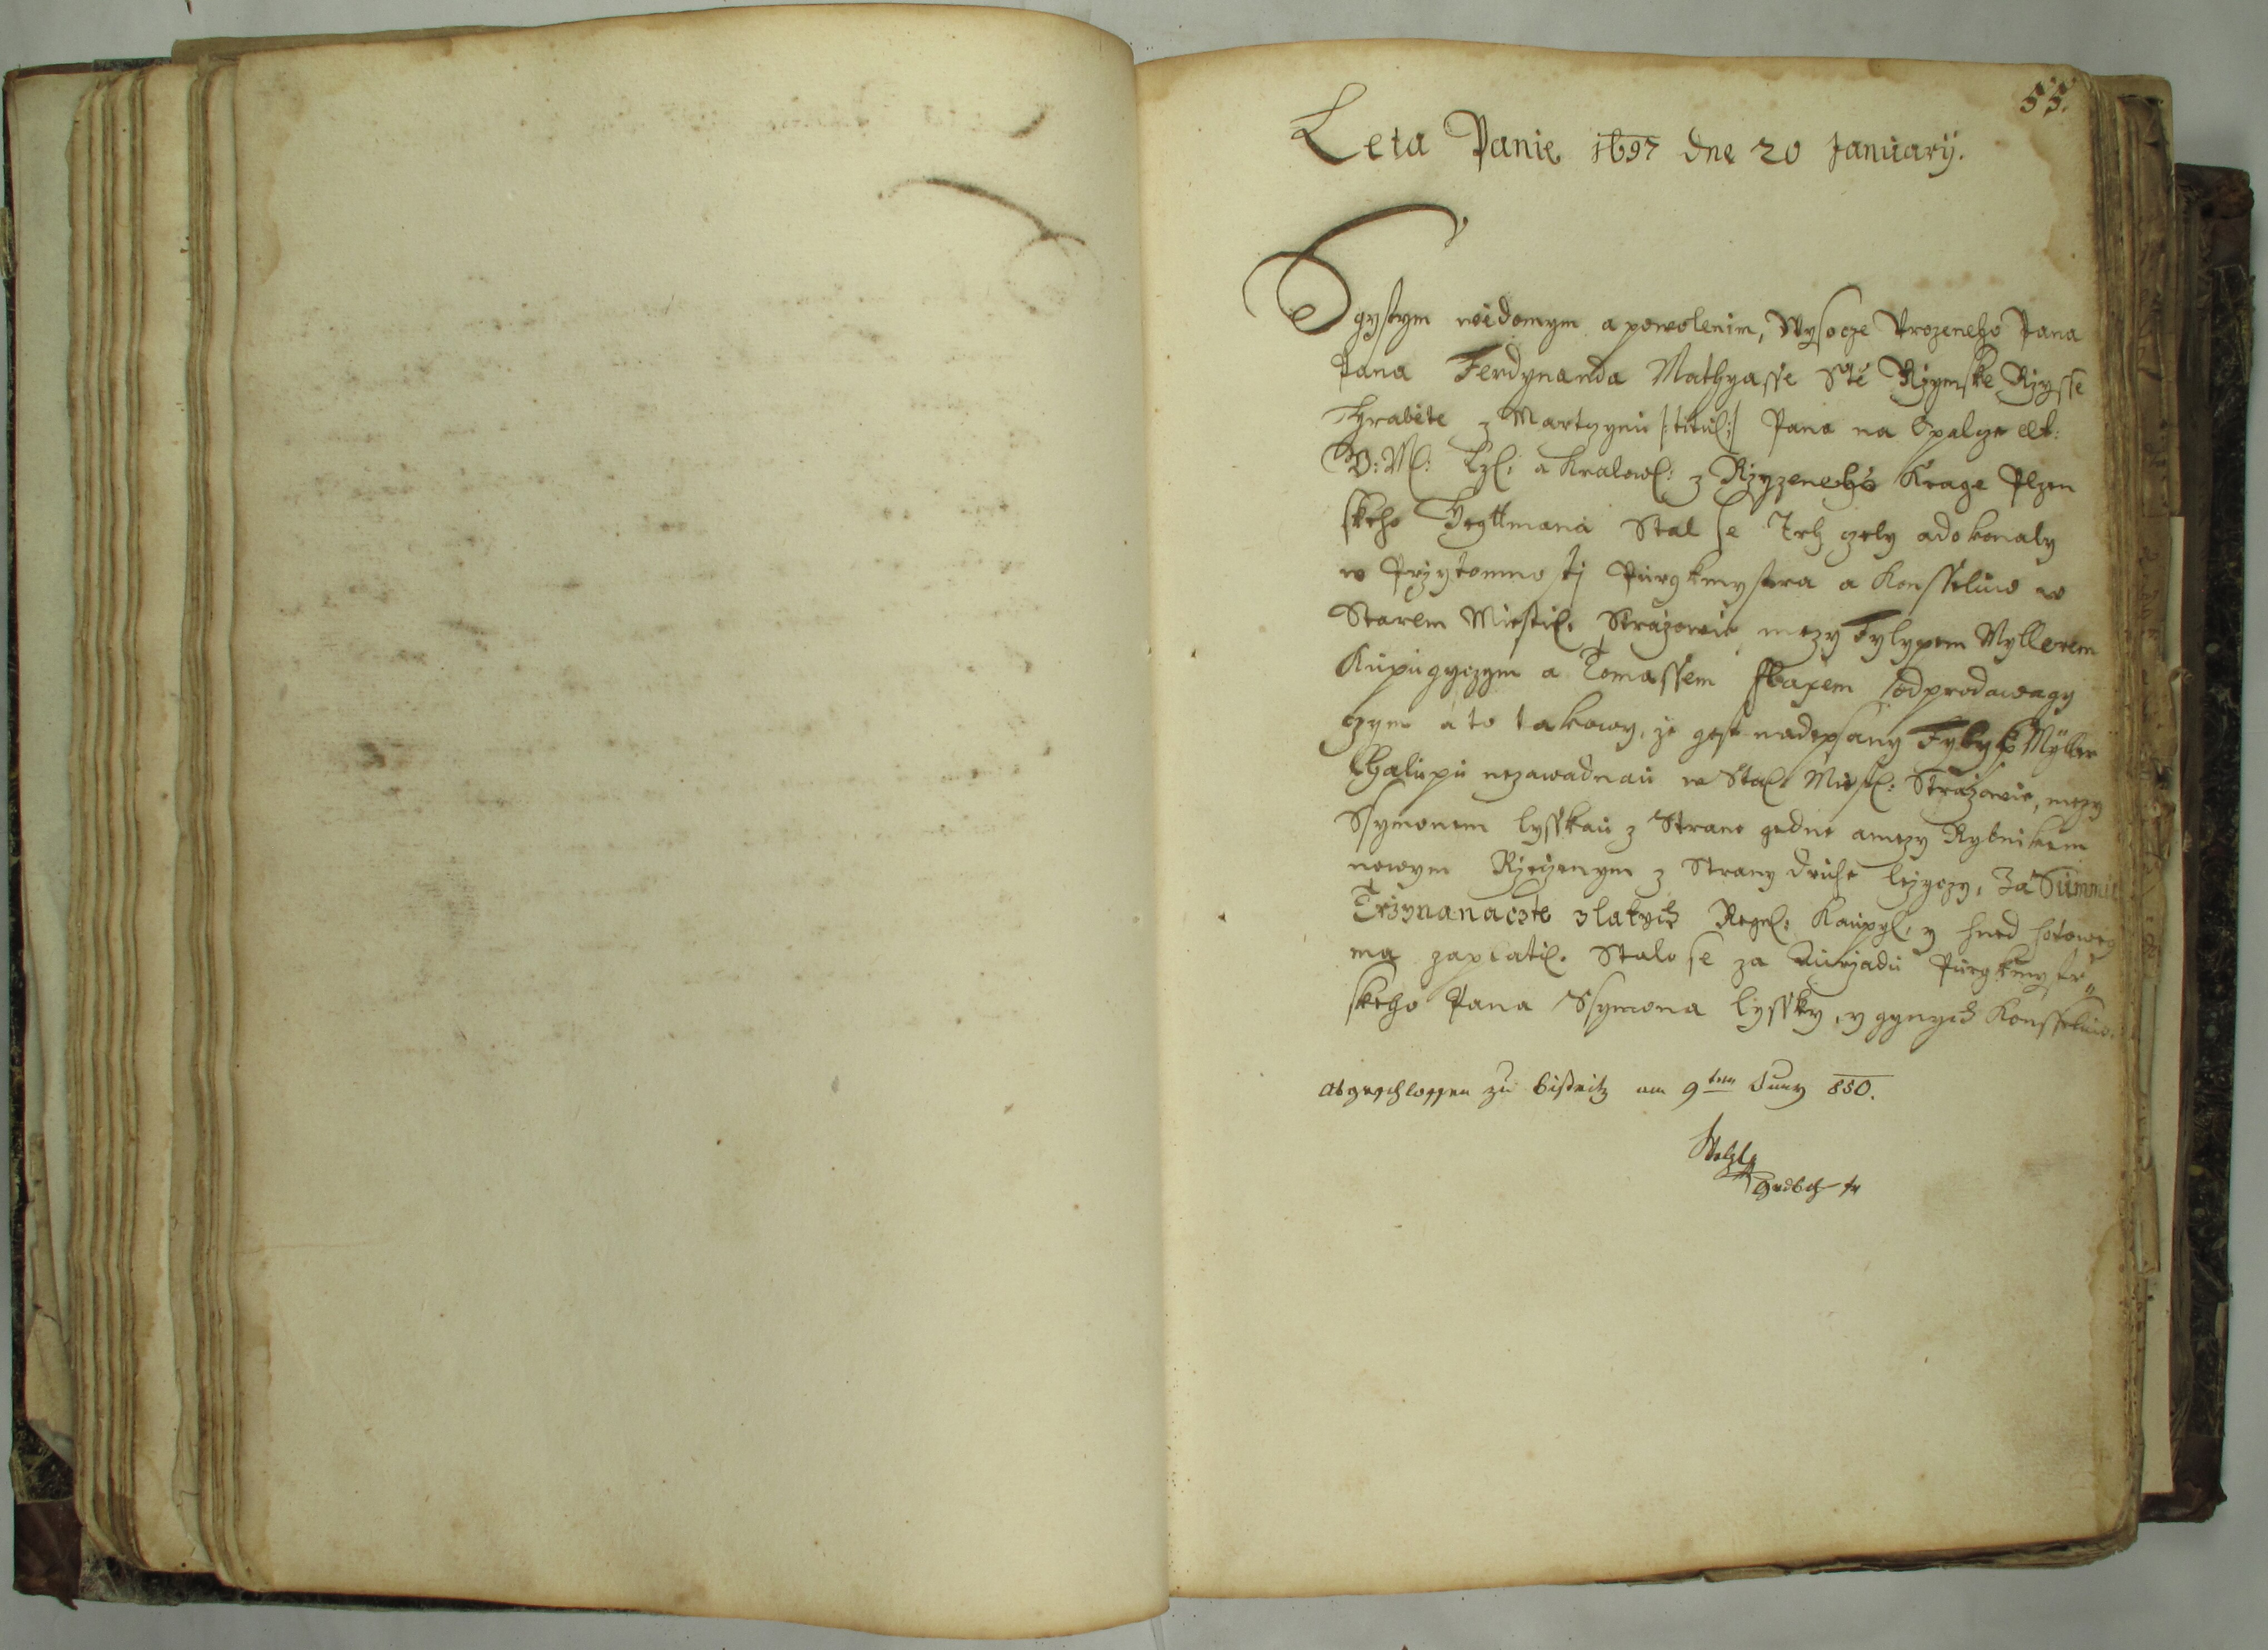 55.
Leta Panie 1697 dne 20 January.
S gystym widomym a powolenim, Wysocze Vrozeneho Pana
Pana Ferdynanda Mathyasse Sté Rzymske Rzysse
Hrabiete z Martyniu /:titul:/ Pana na Opalge ett:
G: Ml: Czl: a Kralowl: z Rzyzeneho Krage Plzen
skeho Heyttmana Stal se Trh czely a dokonaly
w Przytomnostj Purgkmystra a Konsseluw w
Starem Miestcl. Strazowie, mezy Fylypem Myllerem
Kupugyczym a Tomassem odprodawagy
czym a to takowy, ze gest nadepsany Fylyp Müller
Chalupu nezawadnau w Sta: Miestl: Strazowie, mezy
Ssymonem Lysskau z Strane gedne a mezy Rybnikem
nowym Rzeczenym z Strany druhe lezyczy, Za Summu
Trzynanacste zlatych Regnl: Kaupyl, y hned hotowey
ma zaplatil. Stalo se za Aurzadu Purgkmystr„
skeho Pana Ssymona Lyssky, y gynych Konsseluw.
Abgeschlossen zu Bistritz am 9ten Juny 850.